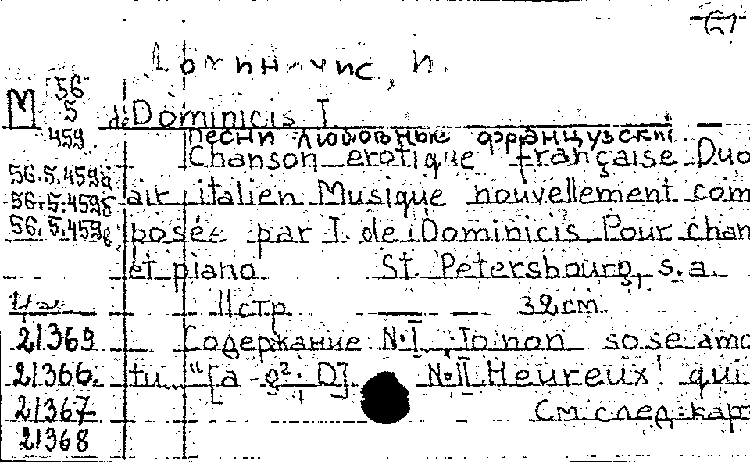 Доминичис, И.
М 56
5
459
de Dominicis I.
Песни любовные французские
Chanson erotique française Duo
56.5.459а
air italien Musique nouvellement com
56.5.459б
posée par I. de Dominicis Pour chan
56.5.459в
et piano St. Petersbourg, s.a.
11стр. 32cm.
21369 Содержание №I „Io non so se amo
21366. tu" [a - g². D] №II Heureux qui
21367 См. след. кар
21368